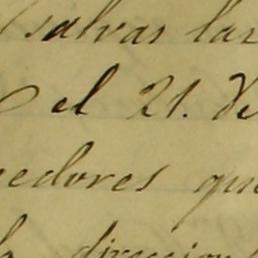 salvas las
el 21. de
edores que
la direccion